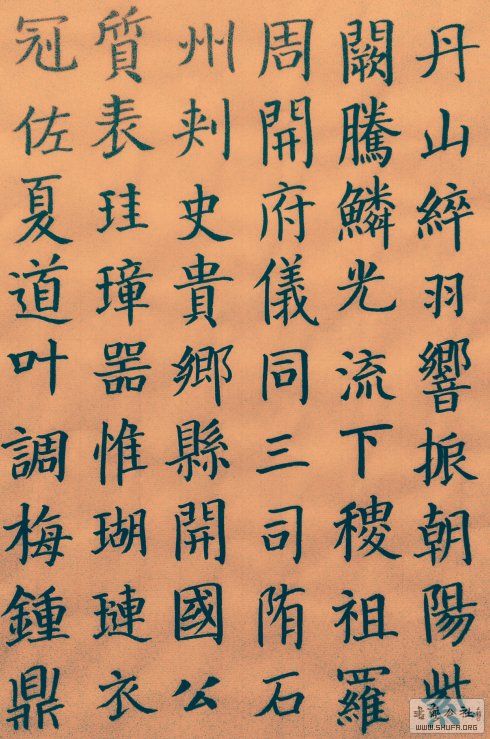 丹山綷羽響振朝陽紫
闕騰鱗光流下稷祖羅
周開府儀同三司陏石
州刾史貴鄉縣開國公
質表珪璋器惟瑚璉衣
冠佐夏道叶調梅鍾鼎
WWW.SHUFA.ORG